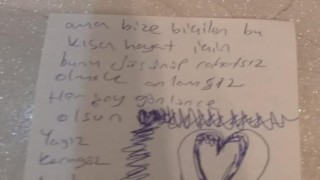 ama bize biçilen bu
kısa hayat için
bunu düşünüp
olmak anlamsız
Her şey gönlünce
olsun
Yagız